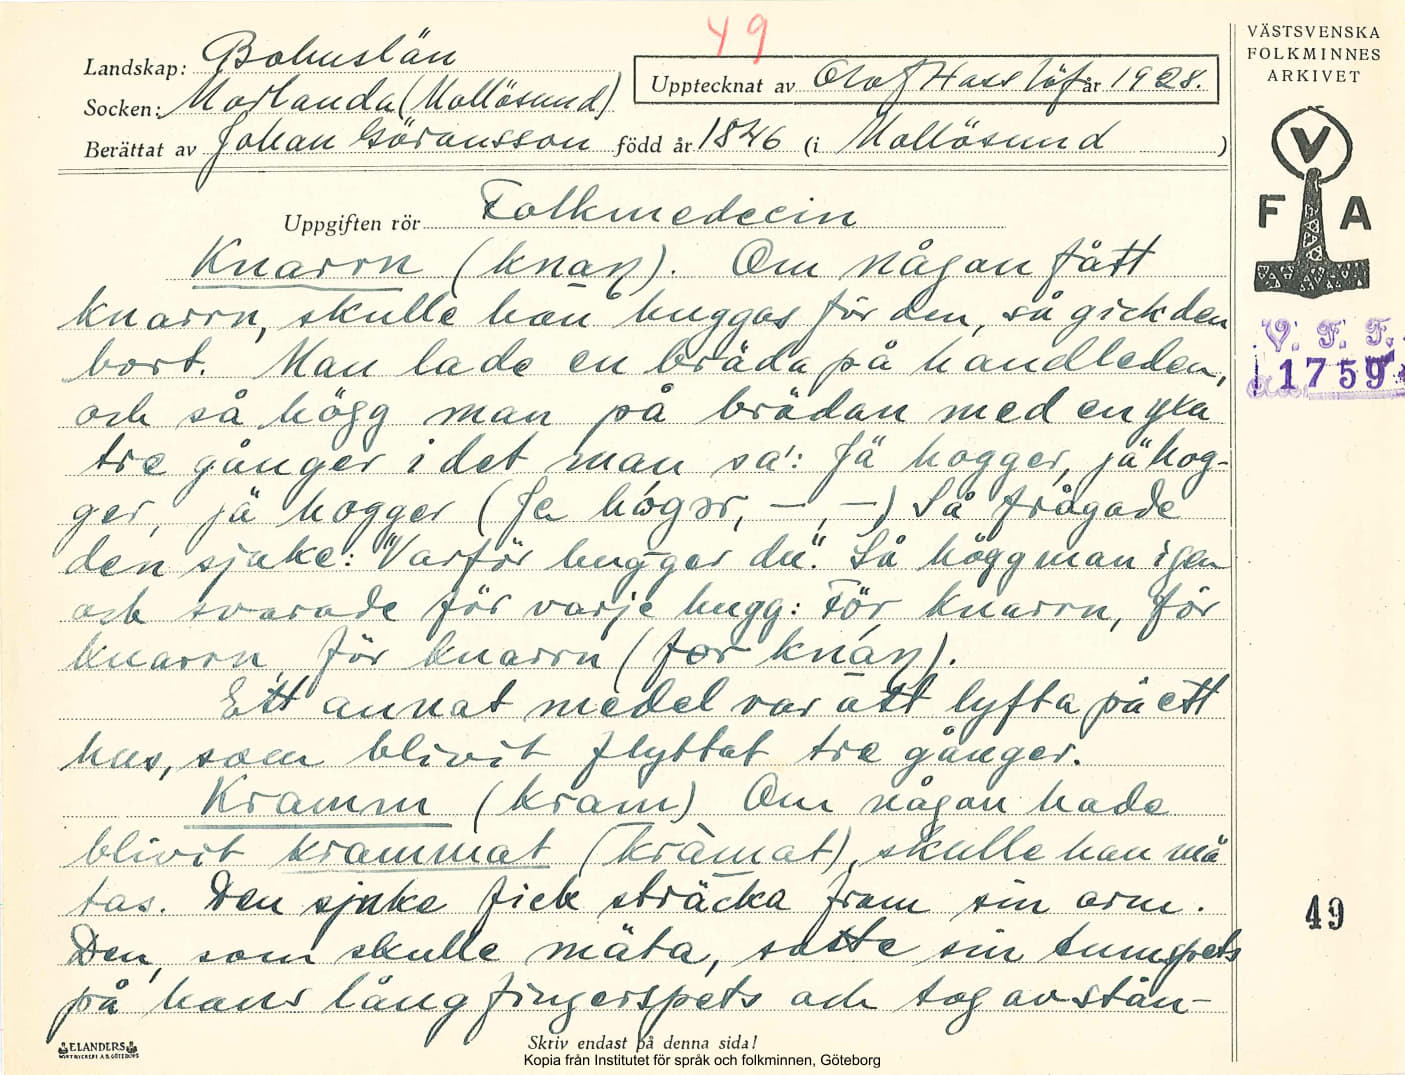 49
Landskap: Bohuslän
Socken: Morlanda (Mollösund)
Upptecknat av Olof Hasslöf år 1928.
Berättat av Johan Göransson född år 1846 (i Mollösund )
VÄSTSVENSKA
FOLKMINNES
ARKIVET
V
F A
V. F. F.
1759
Uppgiften rör Folkmedecin
Knarrn (knaṉ). Om någon fått
knarrn, skulle han huggas för den, så gick den
bort. Man lade en bräda på handleden,
och så högg man på brädan med en yxa
tre gånger i det man sa': Jä hogger, jä hog-
ger, jä hogger (Ja hógər, — , —) Så frågade
den sjuke: "Varför hugger du". Så högg man igen
och svarade för varje hugg: För knarrn, för
knarrn, för knarrn (før knáṉ).
Ett annat medel var att lyfta på ett
hus, som blivit flyttat tre gånger.
Kramm (kram) Om någon hade
blivit krammat (kràmat), skulle han mä
tas. Den sjuke fick sträcka fram sin arm.
Den, som skulle mäta, satte sin tumspets
på hans långfingerspets och tog avstån-
49
ELANDERS
Skriv endast på denna sida!
Kopia från Institutet för språk och folkminnen, Göteborg